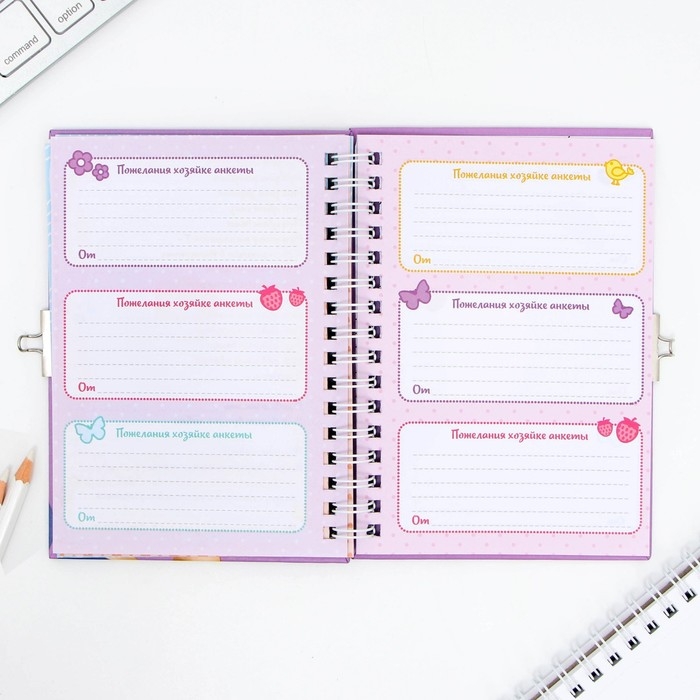 command
option
Пожелания хозяйке анкеты
От
Пожелания хозяйке анкеты
От
Пожелания хозяйке анкеты
От
Пожелания хозяйке анкеты
От
Пожелания хозяйке анкеты
От
Пожелания хозяйке анкеты
От